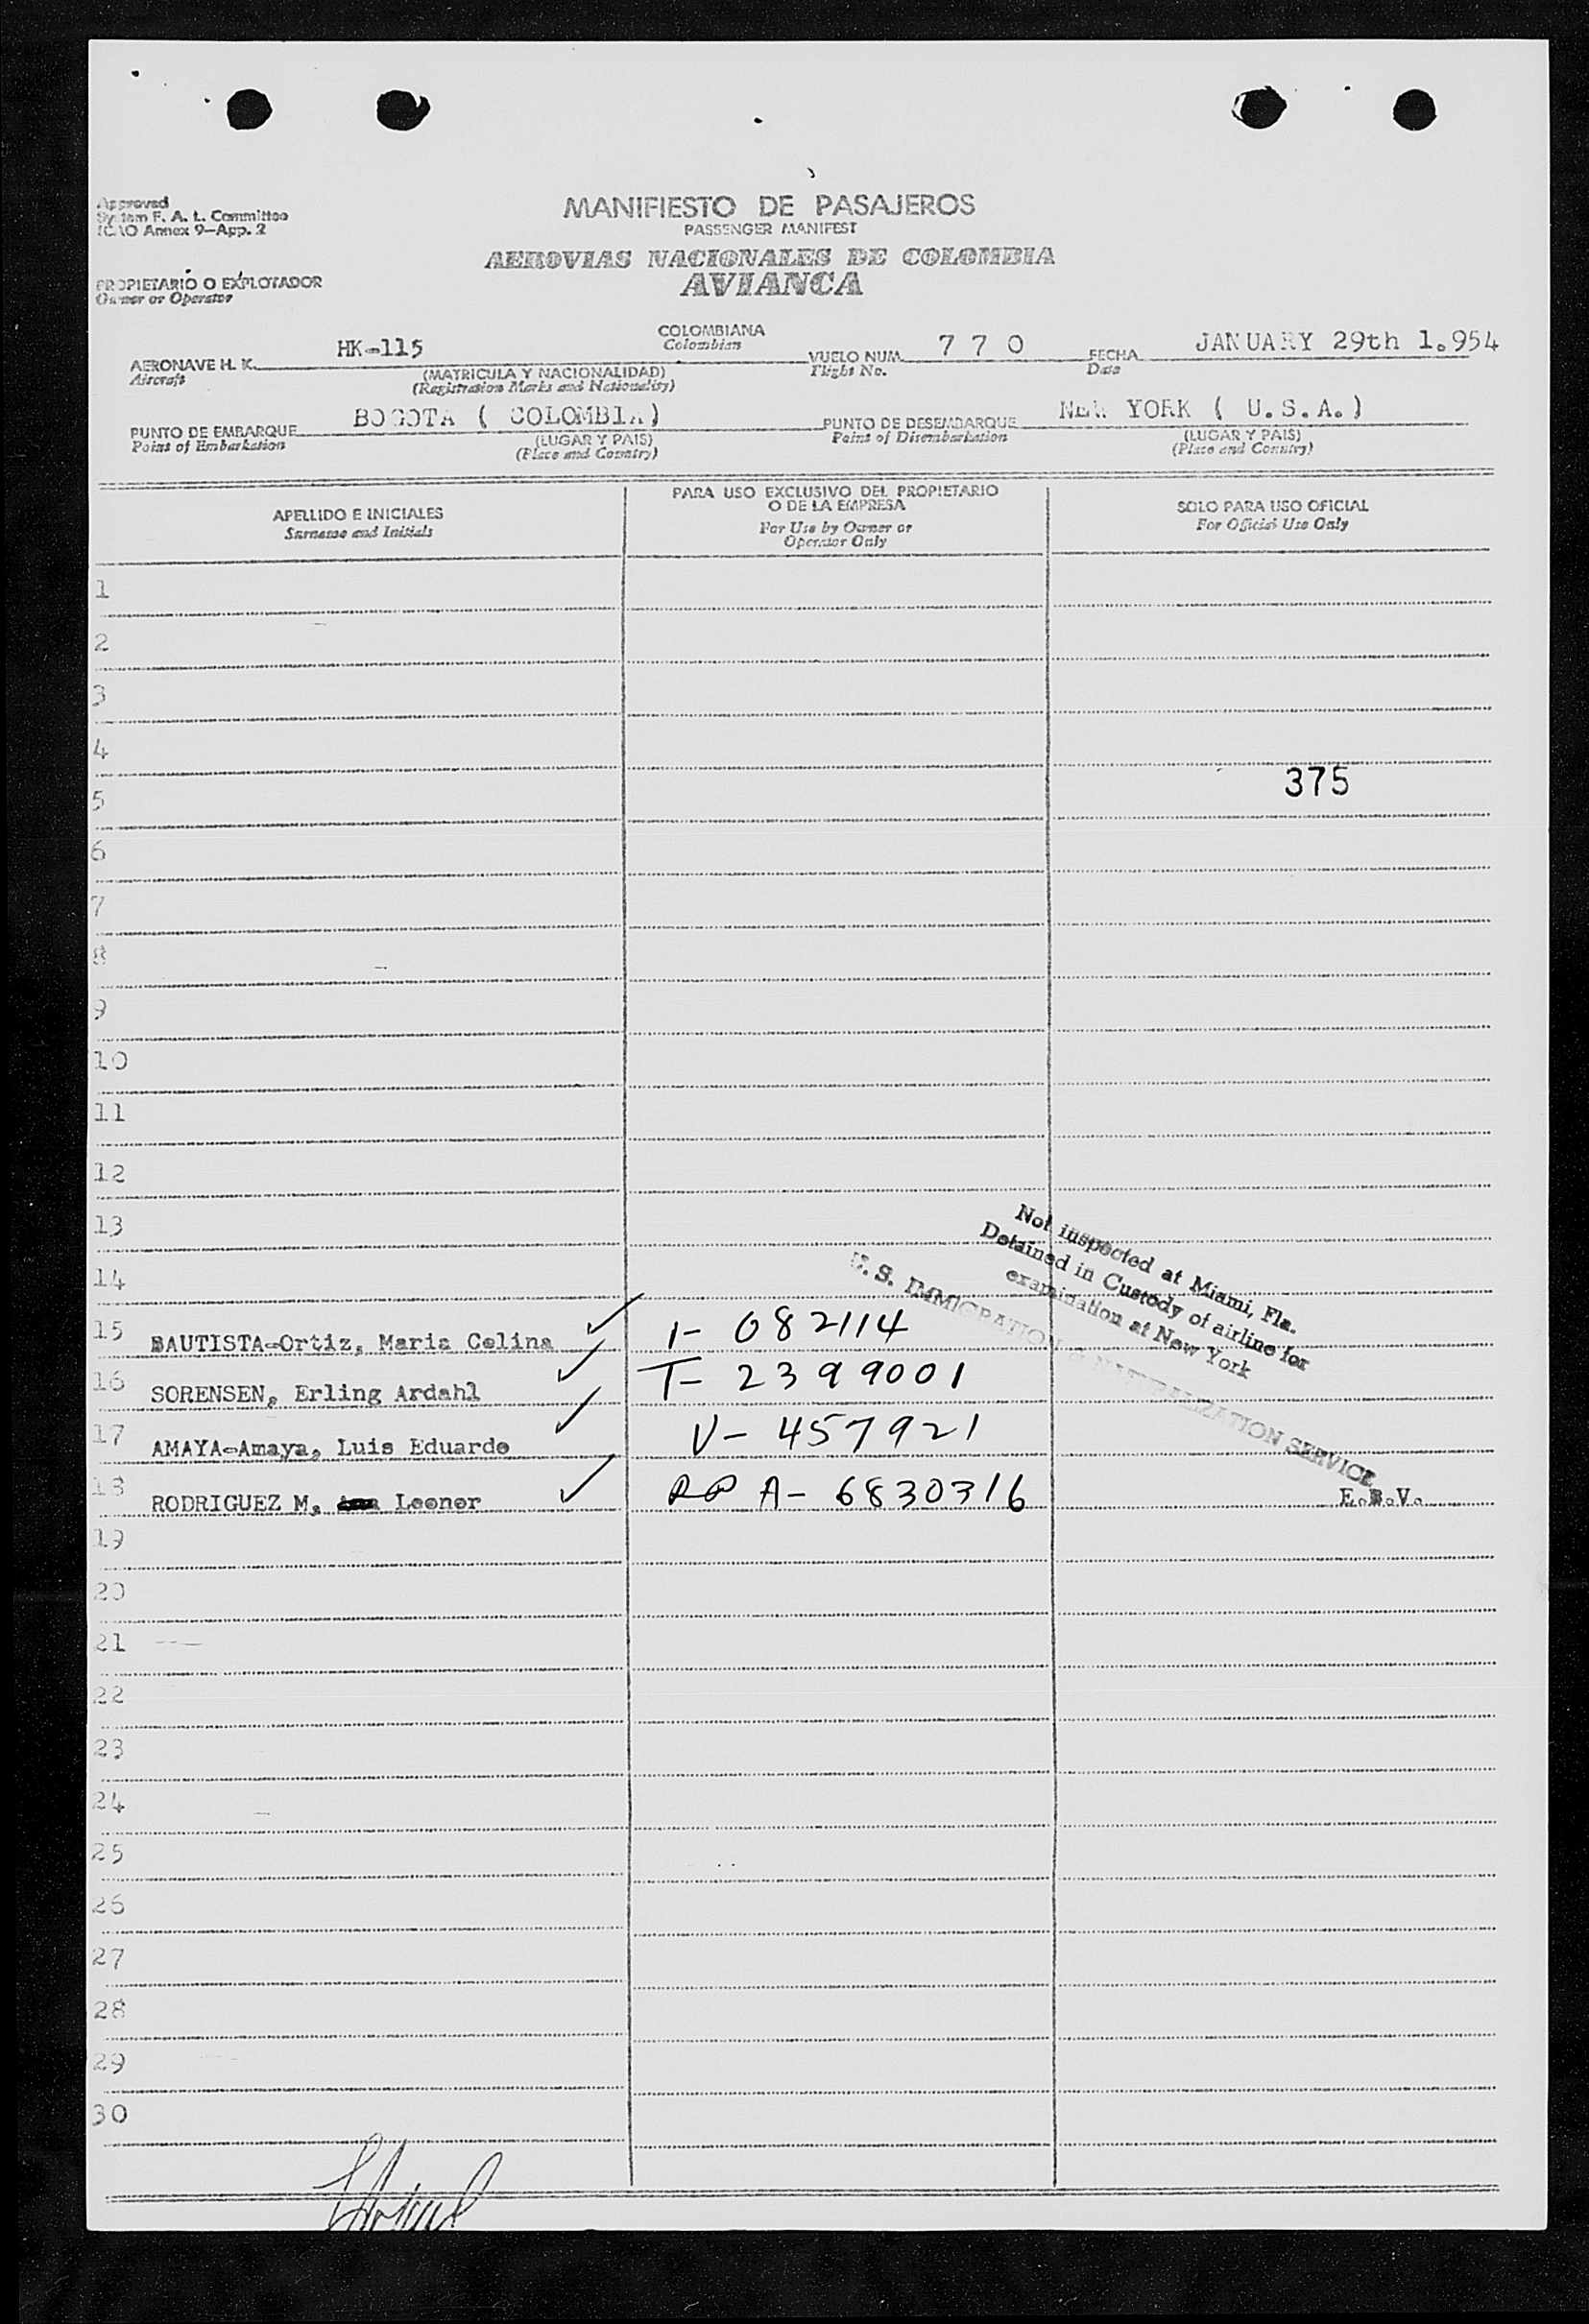 Approved
System F. A. L. Committee
ICAO Annex 9—App. 2
MANIFIESTO DE PASAJEROS
PASSENGER MANIFEST
AEROVIAS NACIONALES DE COLOMBIA
AVIANCA
PROPIETARIO O EXPLOTADOR
Owner or Operator
AERONAVE H. K. HK-115
Aircraft
COLOMBIANA
Colombian
(MATRICULA Y NACIONALIDAD)
(Registration Marks and Nationality)
VUELO NUM. 7 7 0
Flight No.
FECHA JANUARY 29th 1.954
Date
PUNTO DE EMBARQUE BOGOTA ( COLOMBIA)
Point of Embarkation
(LUGAR Y PAIS)
(Place and Country)
PUNTO DE DESEMBARQUE NEW YORK ( U.S.A.)
Point of Disembarkation
(LUGAR Y PAIS)
(Place and Country)
APELLIDO E INICIALES
Surname and Initials
PARA USO EXCLUSIVO DEL PROPIETARIO
O DE LA EMPRESA
For Use by Owner or
Operator Only
SOLO PARA USO OFICIAL
For Official Use Only
1
2
3
4
375
5
6
7
8
9
10
11
12
13
14
Not inspected at Miami, Fla.
Detained in Custody of airline for
examination at New York
U. S. IMMIGRATION & NATURALIZATION SERVICE
15 BAUTISTA-Ortiz, Maria Celina ✓ I- 082114
16 SORENSEN, Erling Ardahl ✓ T- 2399001
17 AMAYA-Amaya, Luis Eduardo ✓ V- 457921
18 RODRIGUEZ M, Leonor ✓ RP A- 6830316 E.B.V.
19
20
21
22
23
24
25
26
27
28
29
30